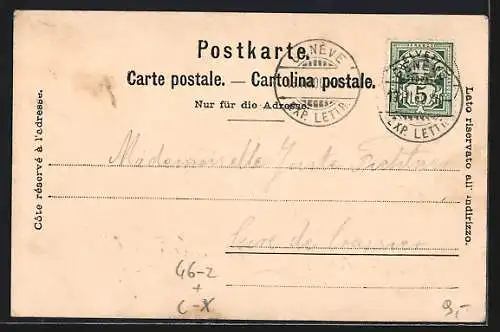 Postkarte.
Carte postale. — Cartolina postale.
Nur für die Adresse.
GENÈVE
EXP. LETTR.
HELVETIA
FRANCO
5
GENÈVE
EXP. LETTR.
Côté réservé à l'adresse.
Lato riservato all'indirizzo.
Mademoiselle
de
46-2
+
C-X
9,-